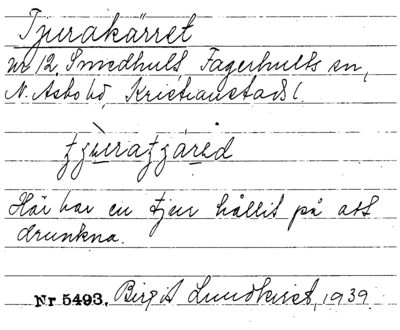 Tjurakärret
nr 12 Smedhult Fagerhults sn,
N. Åsbo hd, Kristianstads l.
Här har en tjur hållit på att
drunkna.
Nr 5493. Birgit Lundkvist, 1939